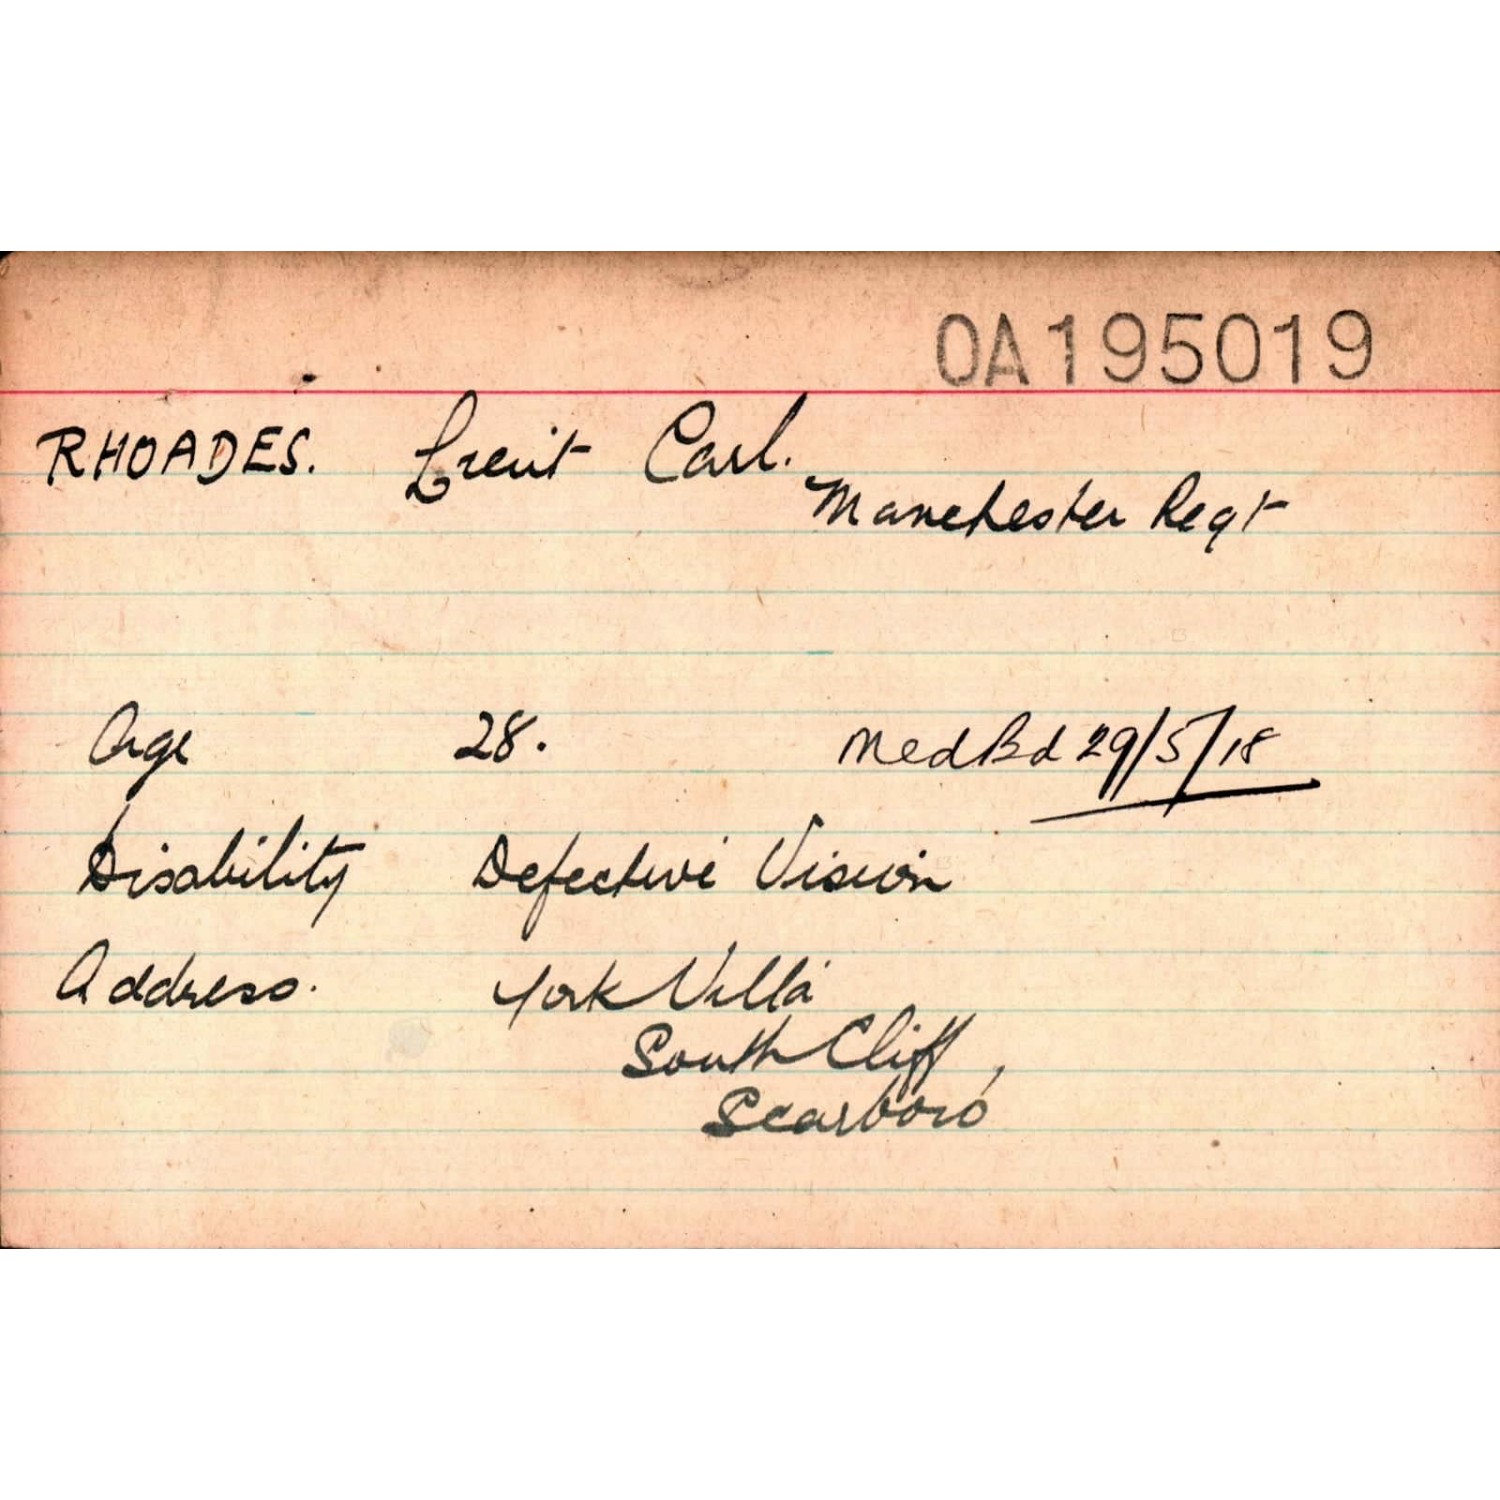 OA195019
RHOADES. Lieut Carl.
Manchester Regt
Age 28. Med Bd 29/5/18
Disability Defective Vision
Address. York Villa
South Cliff,
Scarboro'